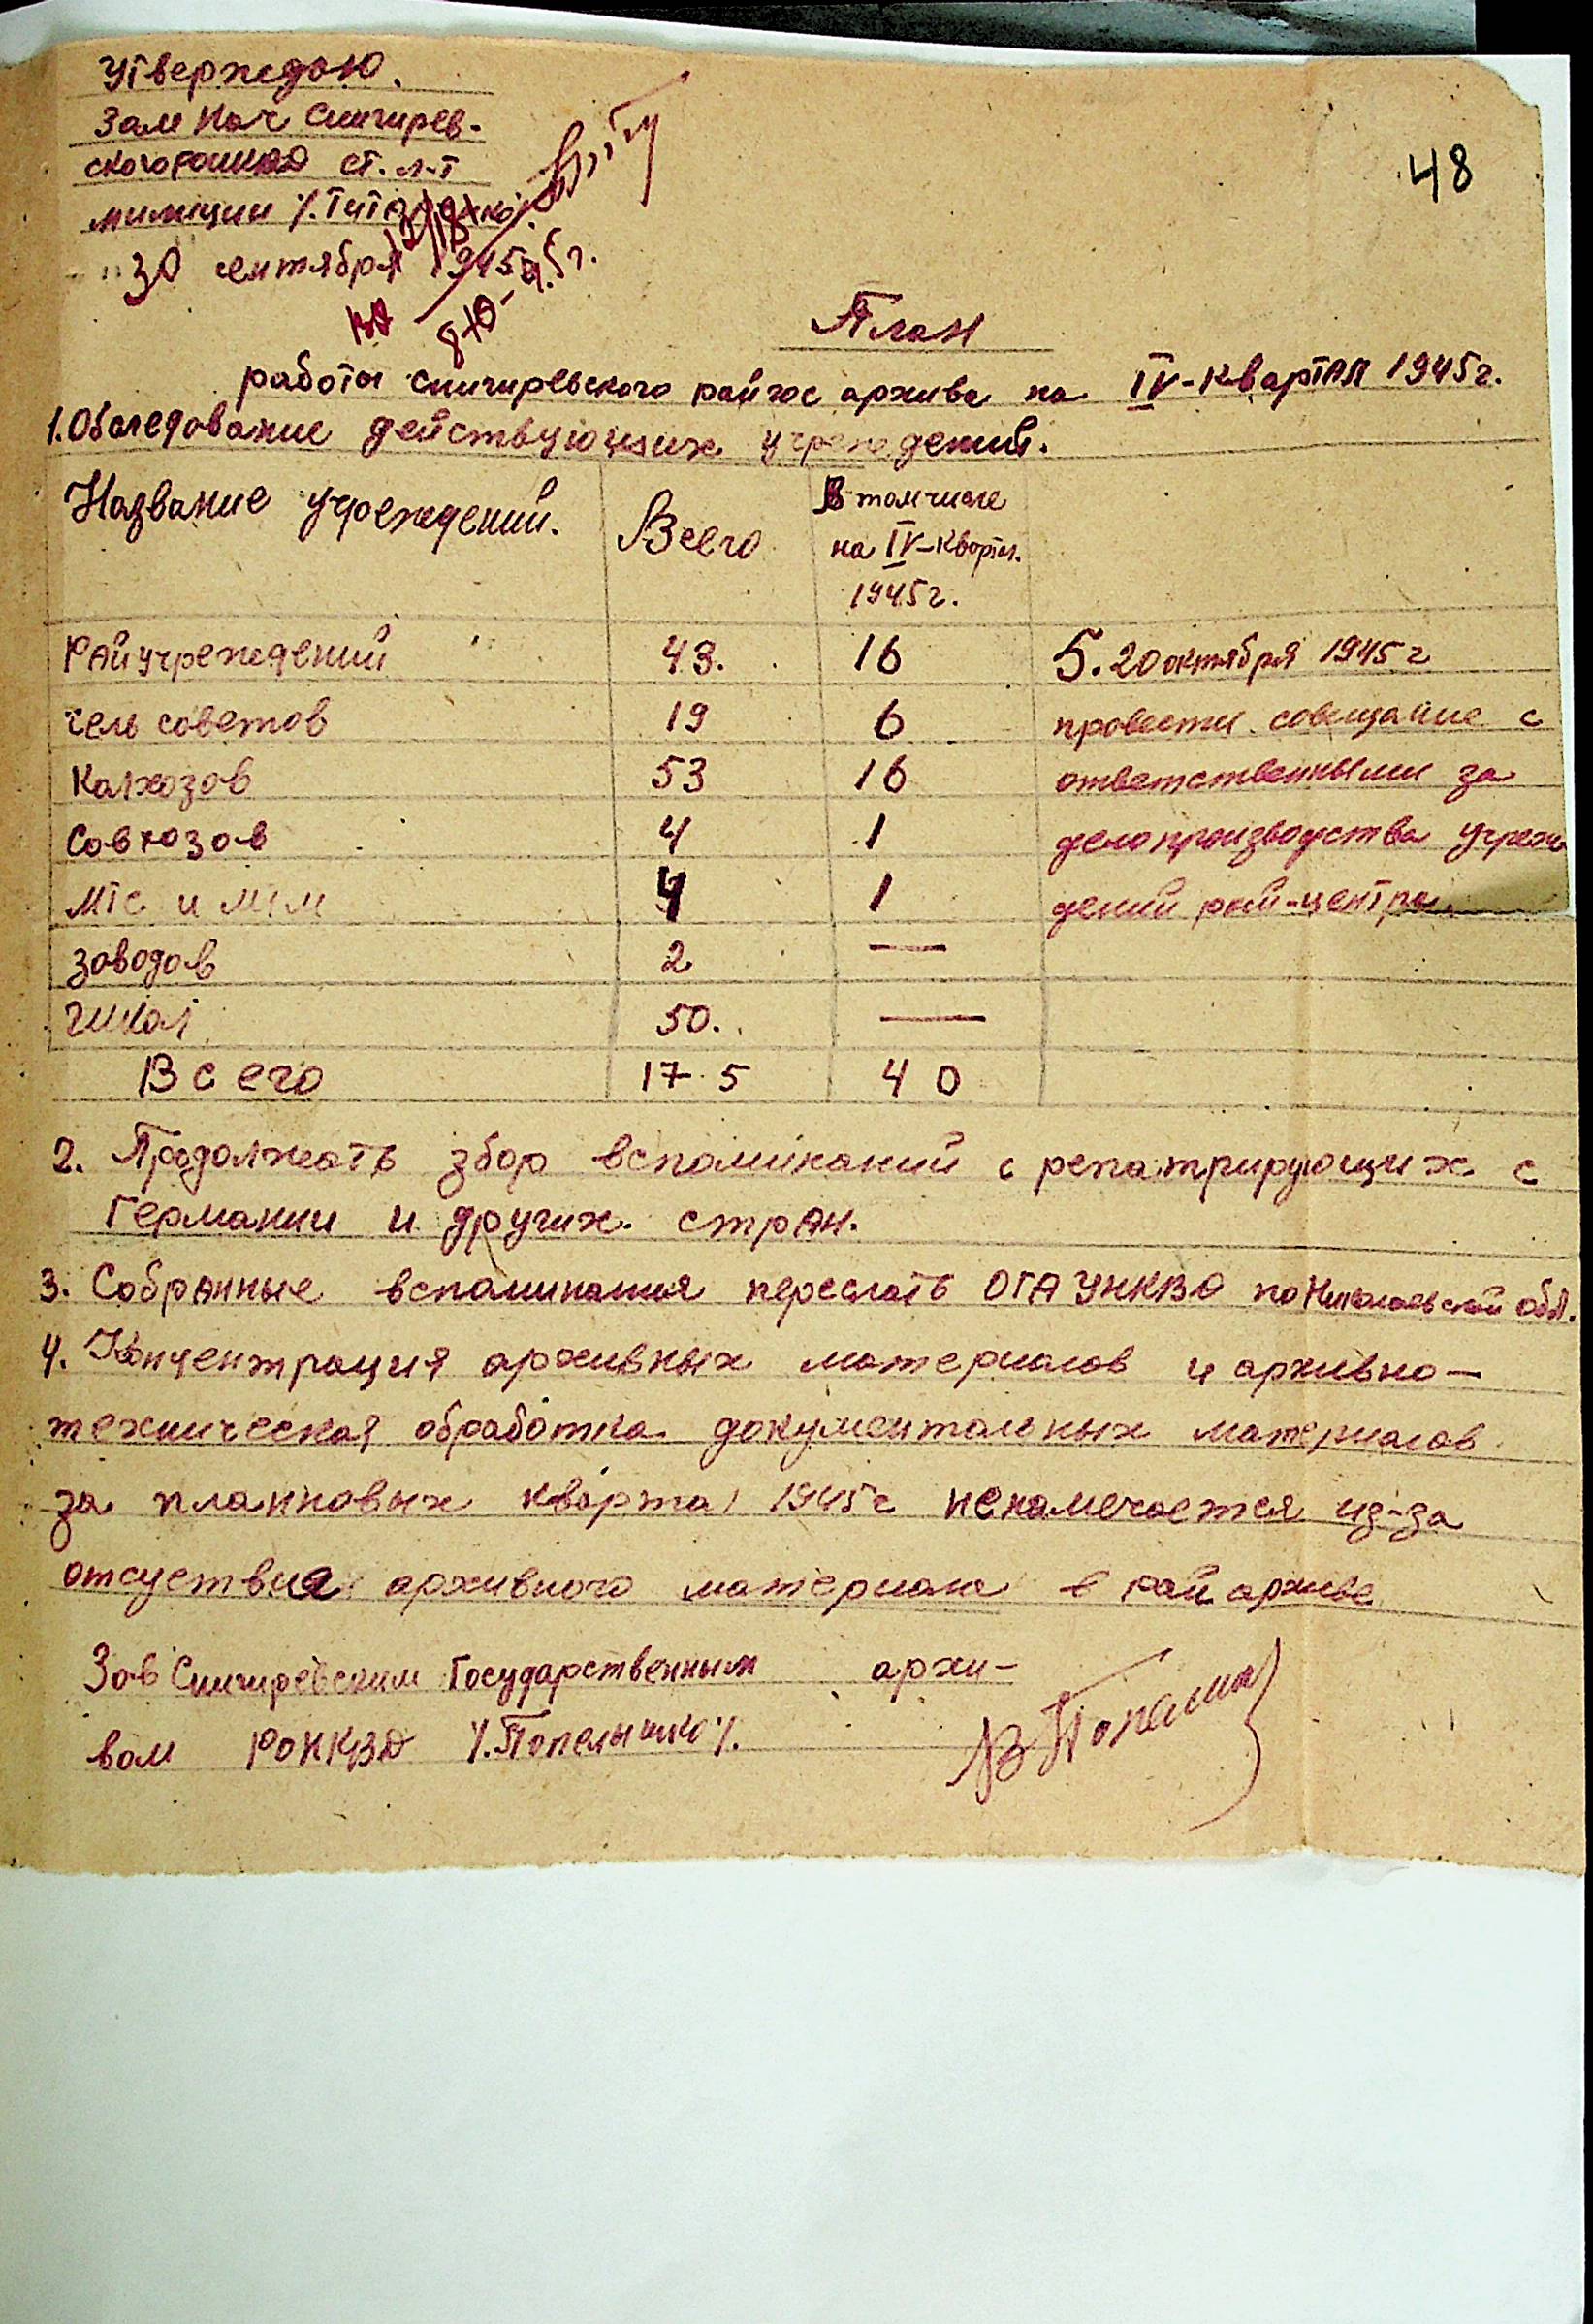 Утверждаю.
Зам Нач Снигирев-
ского РОНКВД ст. л-т
милиции /.Титаренко/
"30 сентября 1945 г.
8/10-45г.
48
План
работы снигиревского райгос архива на IV-квартал 1945г.
1. Обследование действующих учреждений.
Название учреждений. Всего В том числе
на IV-квартал.
1945г.
Райучреждений 43. 16 5. 20 октября 1945 г
сель советов 19 6 провести совещание с
Колхозов 53 16 ответственными за
Совхозов 4 1 делопроизводства учреж
МТС и МТМ 4 1 дений рай-центра.
заводов 2 —
школ 50. —
Всего 17 5 4 0
2. Продолжать збор вспоминаний с репатрирующих с
Германии и других стран.
3. Собранные вспоминания переслать ОГА УНКВД по Николаевской обл.
4. Концентрация архивных материалов и архивно-
техническая обработка документальных материалов
за плановых квартал 1945г ненамечается из-за
отсуствия архивного материала в рай архиве
Зав Снигиревским Государственным архи-
вом РОНКВД /.Попелышко/.